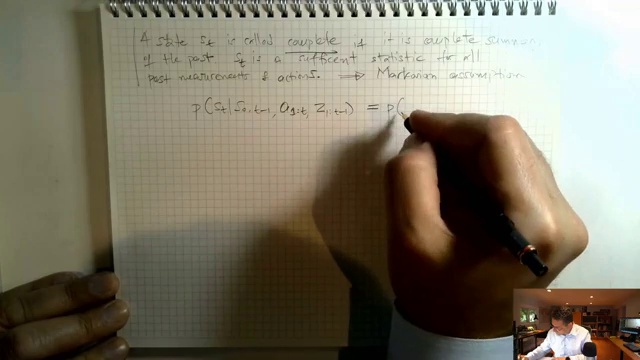 A state s_t is called complete if it is complete summary
of the past s_t is a sufficent statistic for all
past measurements & actions. ⟹ Markovian assumption
p(s_t | s_{0:t-1}, a_{1:t}, z_{1:t-1}) = p(